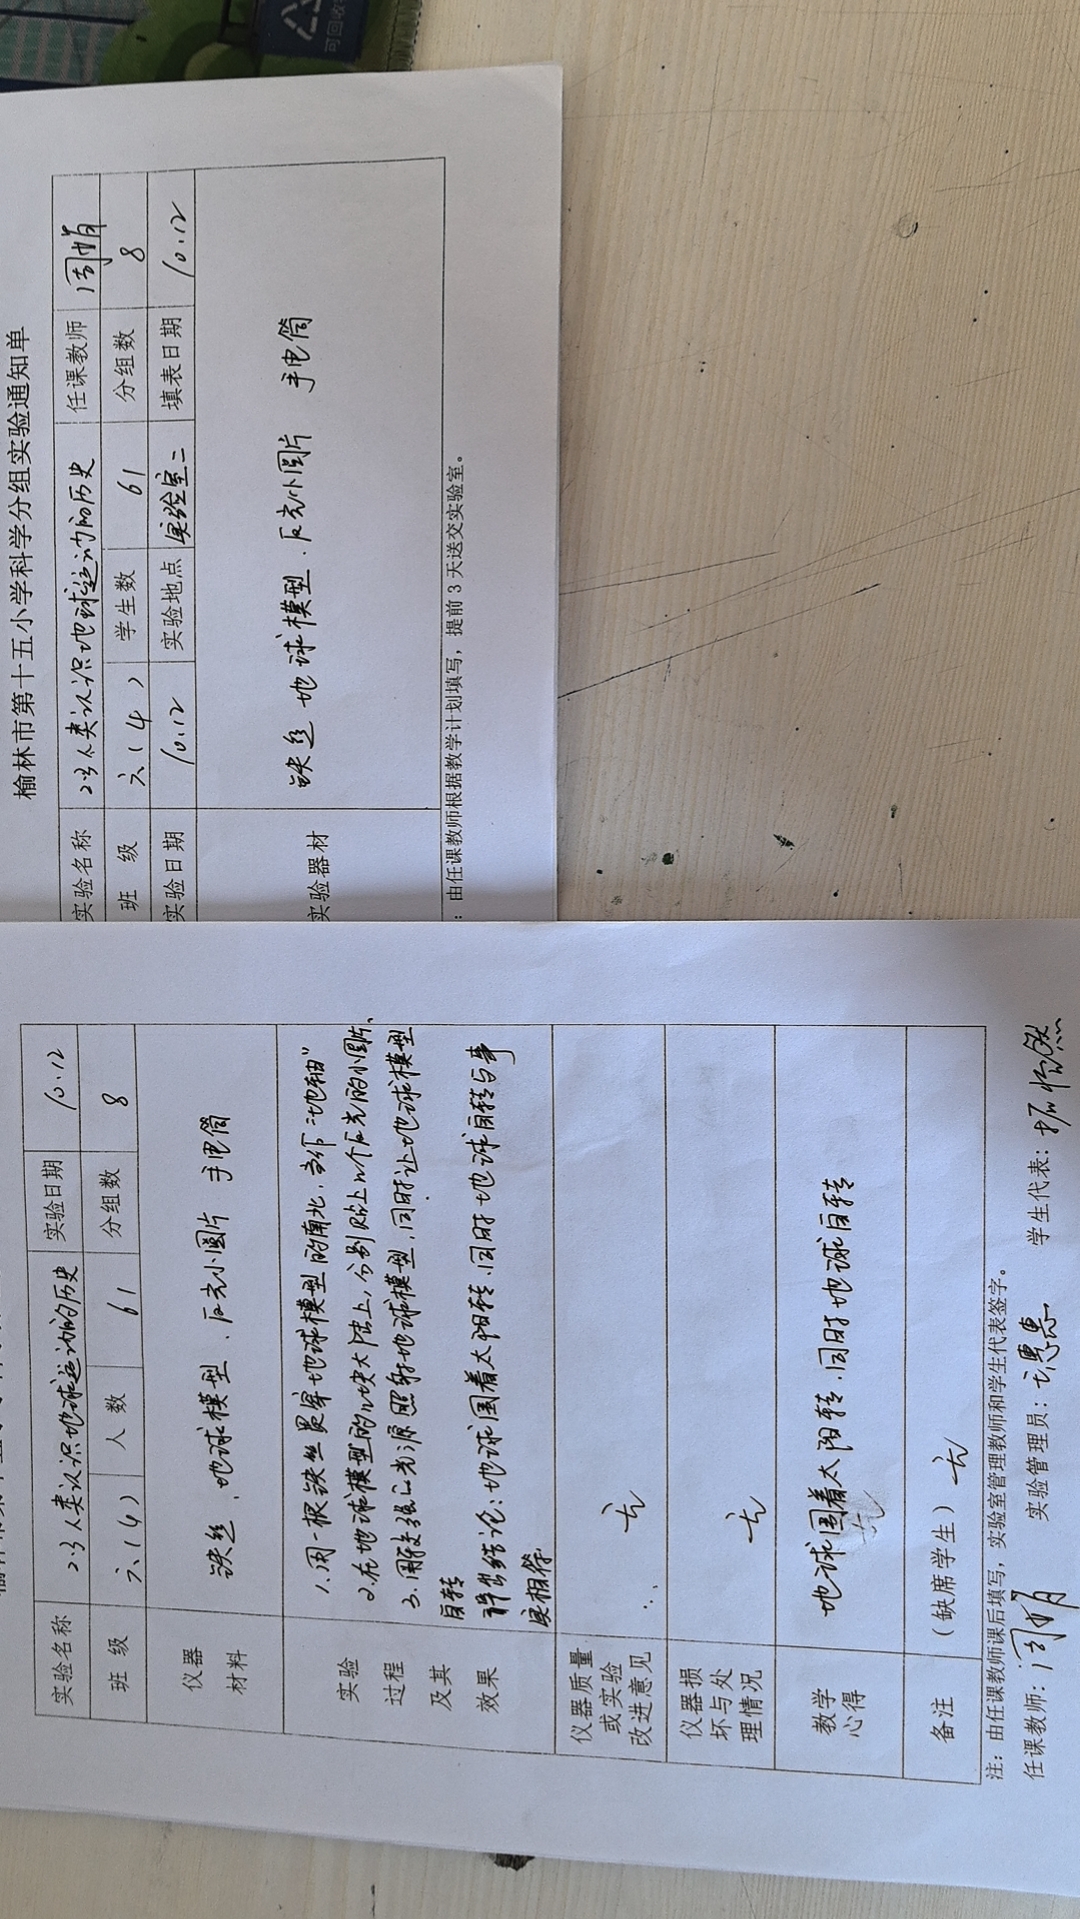 可回收
榆林市第十五小学科学分组实验通知单
实验名称 2.3人类认识地球运动的历史 任课教师 周娟
班 级 六(4) 学生数 61 分组数 8
实验日期 10.12 实验地点 实验室二 填表日期 10.12
实验器材 铁丝 地球模型、反光小圆片 手电筒
：由任课教师根据教学计划填写，提前3天送交实验室。
实验名称 2.3人类认识地球运动的历史 实验日期 10.12
班 级 六(4) 人 数 61 分组数 8
仪器
材料
铁丝、地球模型、反光小圆片 手电筒
实验
过程
及其
效果
1.用一根铁丝贯穿地球模型的南北，当作“地轴”
2.在地球模型的几块大陆上，分别贴上几个反光的小圆片、
3.用光源照射地球模型，同时让地球模型
自转
得出结论：地球围着太阳转、同时地球自转与事
实相符
仪器质量
或实验
改进意见
无
仪器损
坏与处
理情况
无
教学
心得
地球围着太阳转、同时地球自转
备注 （缺席学生） 无
注：由任课教师课后填写，实验室管理教师和学生代表签字。
任课教师：周娟 实验管理员： 学生代表：